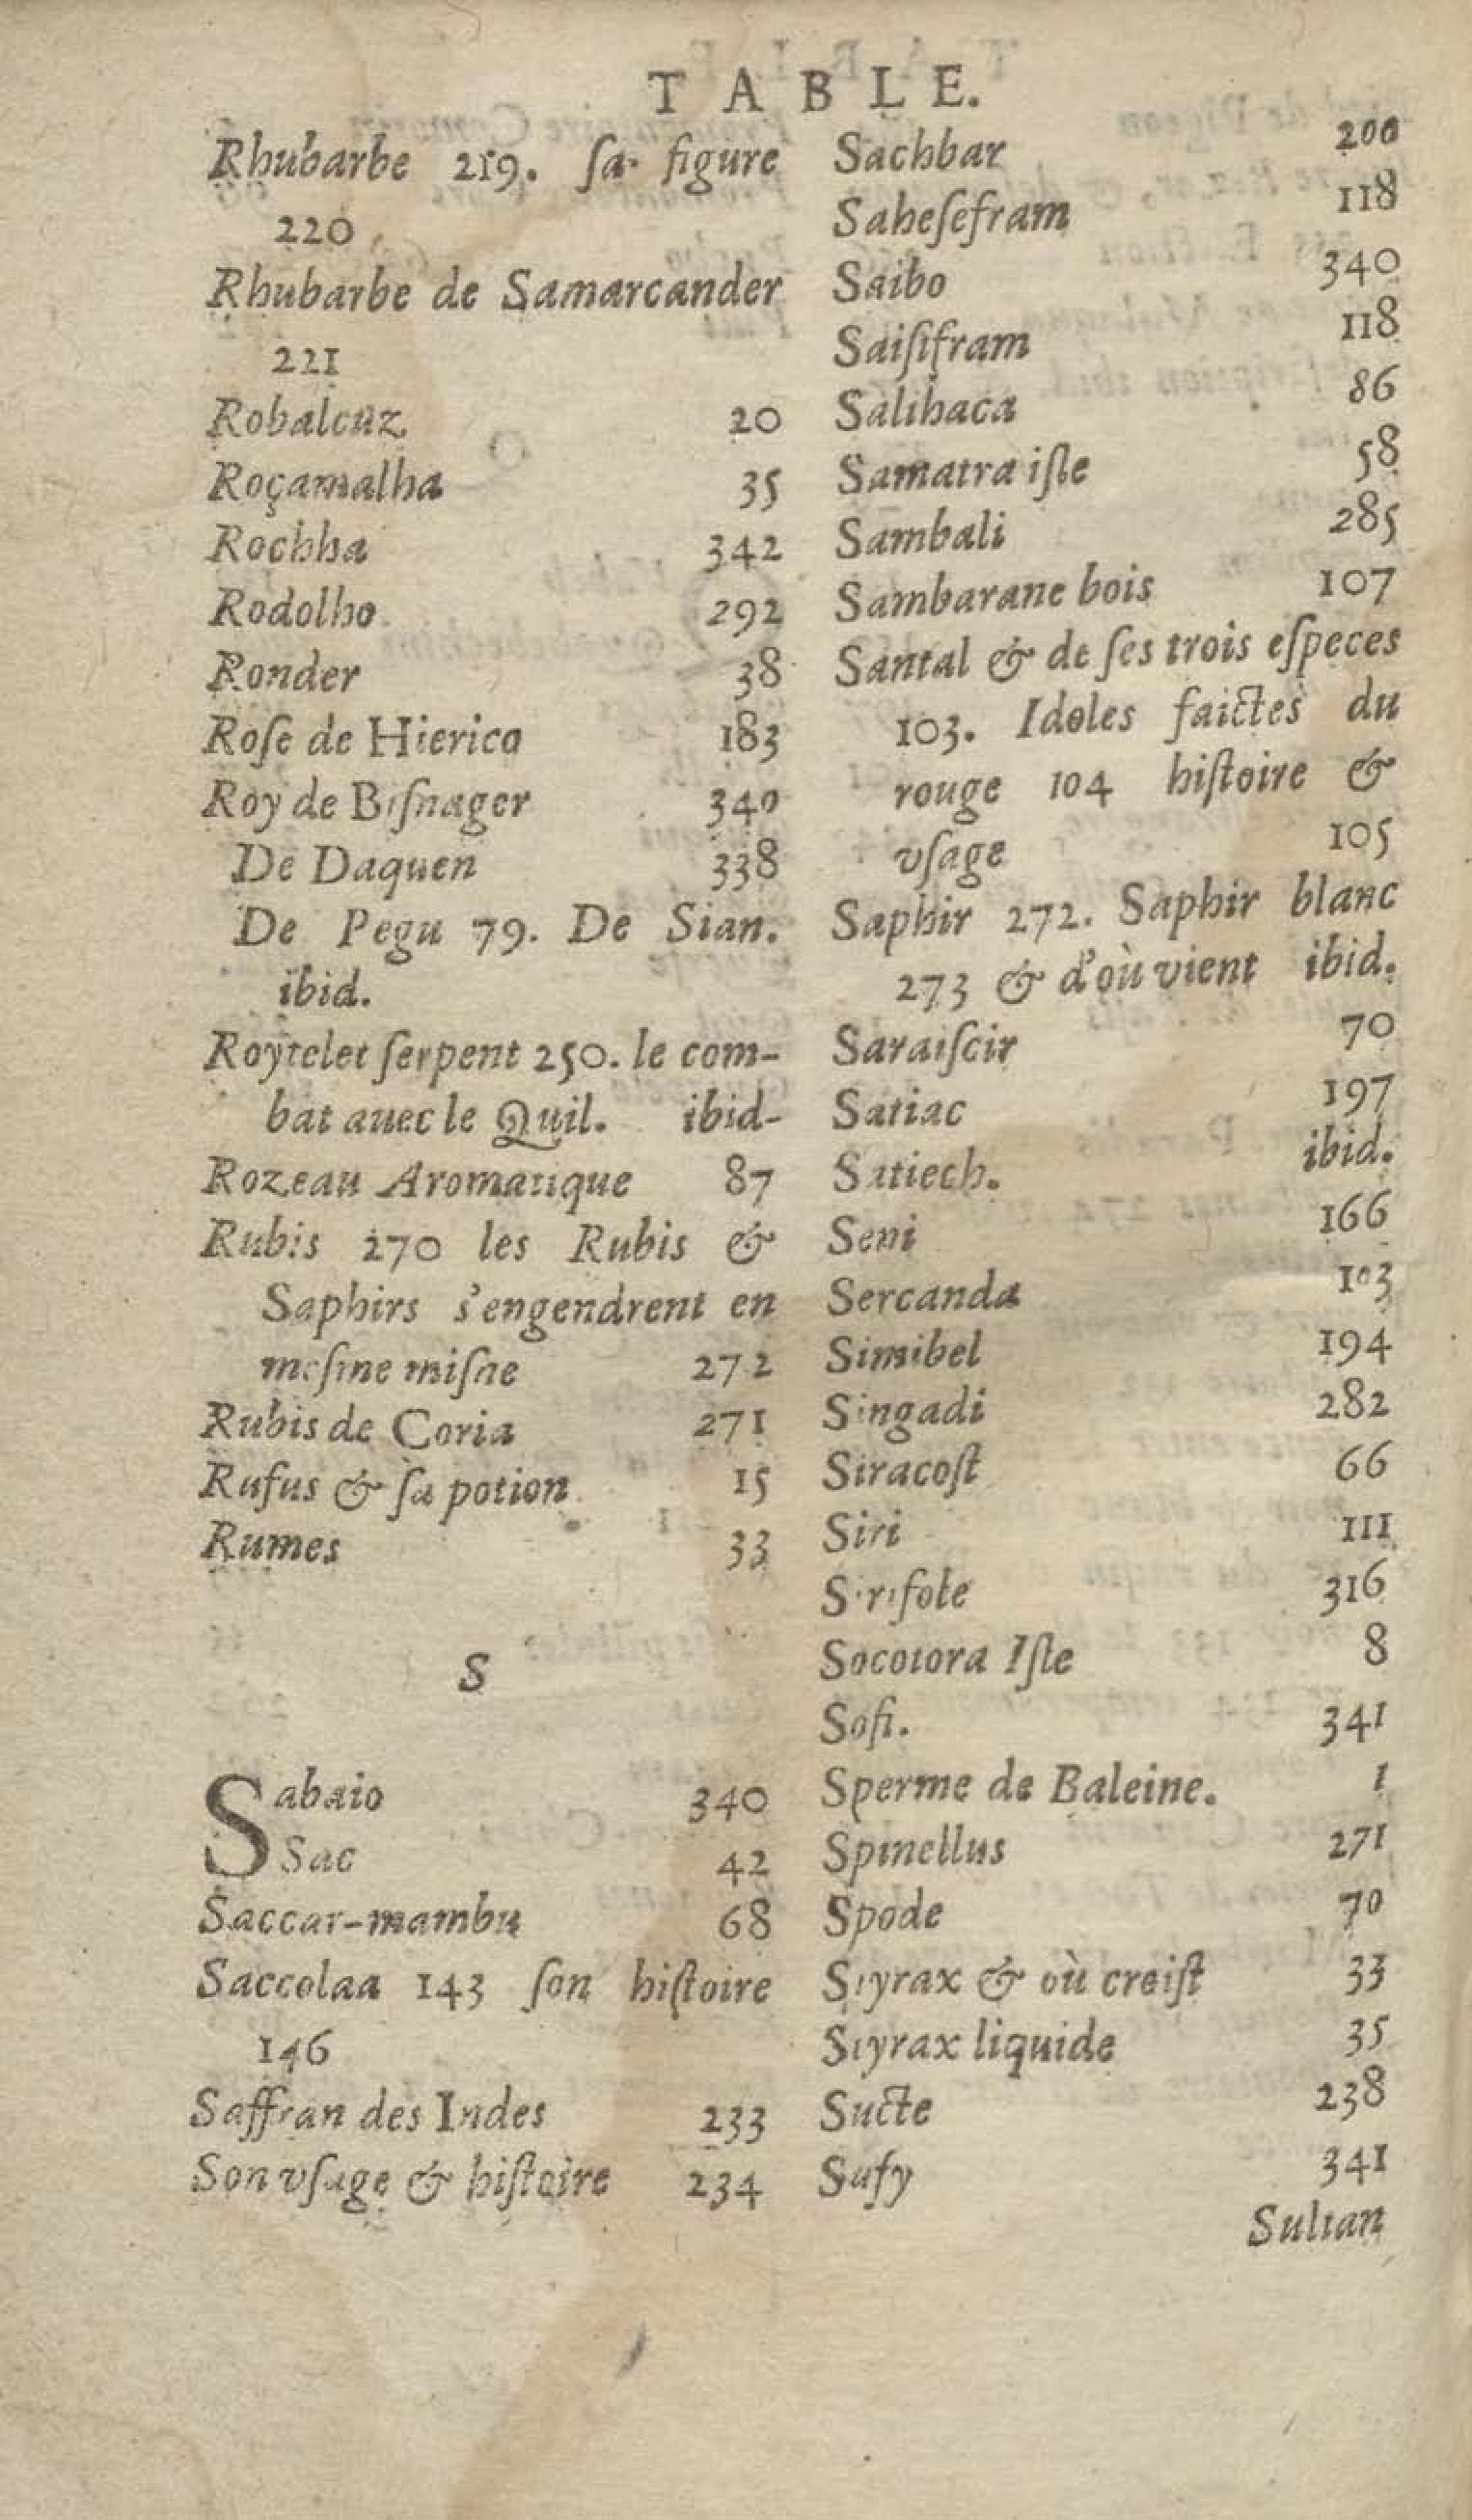 TABLE.
Rhubarbe 219. ſa figure
220
Rhubarbe de Samarcander
221
Robalcuz 20
Roçamalha 35
Rochha 342
Rodolho 292
Ronder 38
Roſe de Hierico 183
Roy de Biſnager 340
De Daquen 338
De Pegu 79. De Sian.
ibid.
Roytelet ſerpent 250. le com-
bat auec le Quil. ibid-
Rozeau Aromatique 87
Rubis 270 les Rubis &
Saphirs s'engendrent en
meſme miſne 272
Rubis de Coria 271
Rufus & ſa potion 15
Rumes 33
S
Sabaio 340
Sac 42
Saccar-mambu 68
Saccolaa 143 ſon hiſtoire
146
Saffran des Indes 233
Son vſage & hiſtoire 234
Sachbar 200
Saheſefram 118
Saibo 340
Saiſifram 118
Salihaca 86
Samatra iſle 58
Sambali 285
Sambarane bois 107
Santal & de ſes trois eſpeces
103. Idoles faictes du
rouge 104 hiſtoire &
vſage 105
Saphir 272. Saphir blanc
273 & d'où vient ibid.
Saraiſcir 70
Satiac 197
Satiech. ibid.
Seni 166
Sercanda 103
Simibel 194
Singadi 282
Siracoſt 66
Siri 111
Sirifole 316
Socotora Iſle 8
Sofi. 341
Sperme de Baleine. 1
Spinellus 271
Spode 70
Styrax & où creiſt 33
Styrax liquide 35
Sucte 238
Sufy 341
Sultan